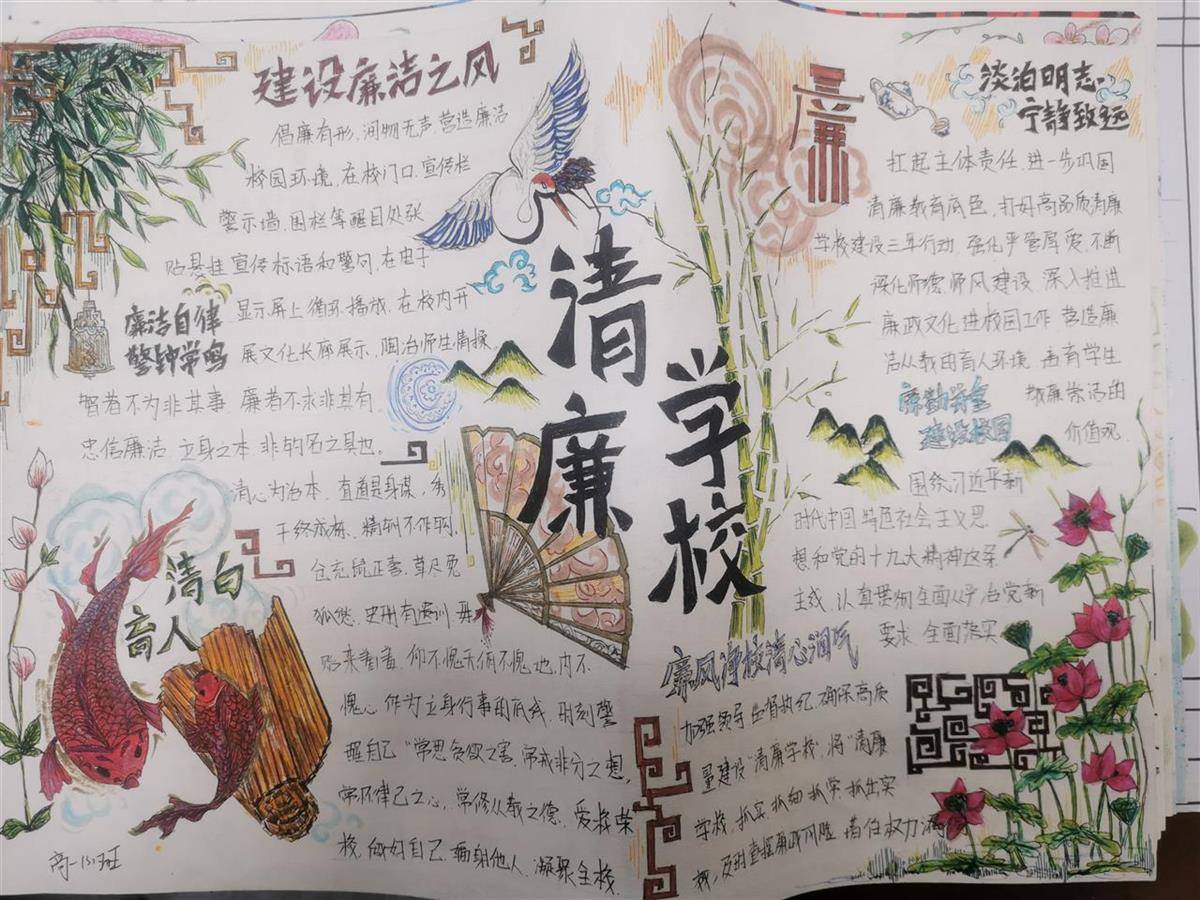 建设廉洁之风
倡廉有形,润物无声.营造廉洁
校园环境,在校门口.宣传栏
警示墙.围栏等醒目处张
贴悬挂宣传标语和警句,在电子
显示屏上循环播放,在校内开
展文化长廊展示,陶冶师生情操。
廉洁自律
警钟常鸣
智者不为非其事 廉者不求非其有.
忠信廉洁,立身之本 非钓名之具也。
清心为治本,直道是身谋,秀
干终成栋,精钢不作钩,
仓充鼠雀喜,草尽兔
狐愁.史册有遗训 毋
贻来者羞.仰不愧天俯不愧地,内不
愧心 作为立身行事的底线 时刻警
醒自己"常思贪欲之害,常戒非分之想,
常怀律己之心,常修从教之德,爱校荣
校,做好自己,辐射他人,凝聚全校.
清白
育人
高一(3)班
清
廉
学
校
廉
淡泊明志
宁静致远
扛起主体责任.进一步巩固
清廉教育底色,打好高品质清廉
学校建设三年行动,强化严管厚爱,不断
深化师德师风建设 深入推进
廉政文化进校园工作 营造廉
洁从教的育人环境
敬廉崇洁的
价值观.
建设校园
围绕习近平新
时代中国特色社会主义思
想和党的十九大精神这条
主线,认真贯彻全面从严治党新
要求 全面落实
廉风净校清心润气
加强领导 监督执纪.确保高质
量建设"清廉学校",将"清廉
学校,抓实 抓细 抓常 抓出实
廉政风险